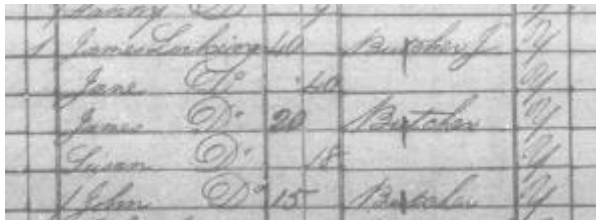 Do 9
1 James Lurking 40 Butcher J Y
Jane Do 40 Y
James Do 20 Butcher Y
Susan Do 18 Y
1 John Do 15 Butcher Y